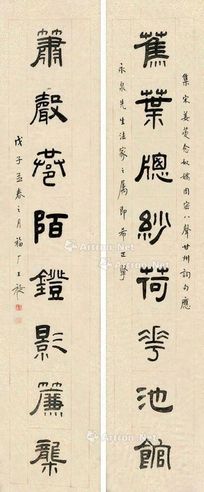 集宋姜夔念奴嬌周密八聲甘州詞句應
蕉葉牕紗荷花池館
永泉先生法家之屬即希正擘
簫聲巷陌鐙影簾櫳
戊子孟春之月福厂王禔
Artron.Net